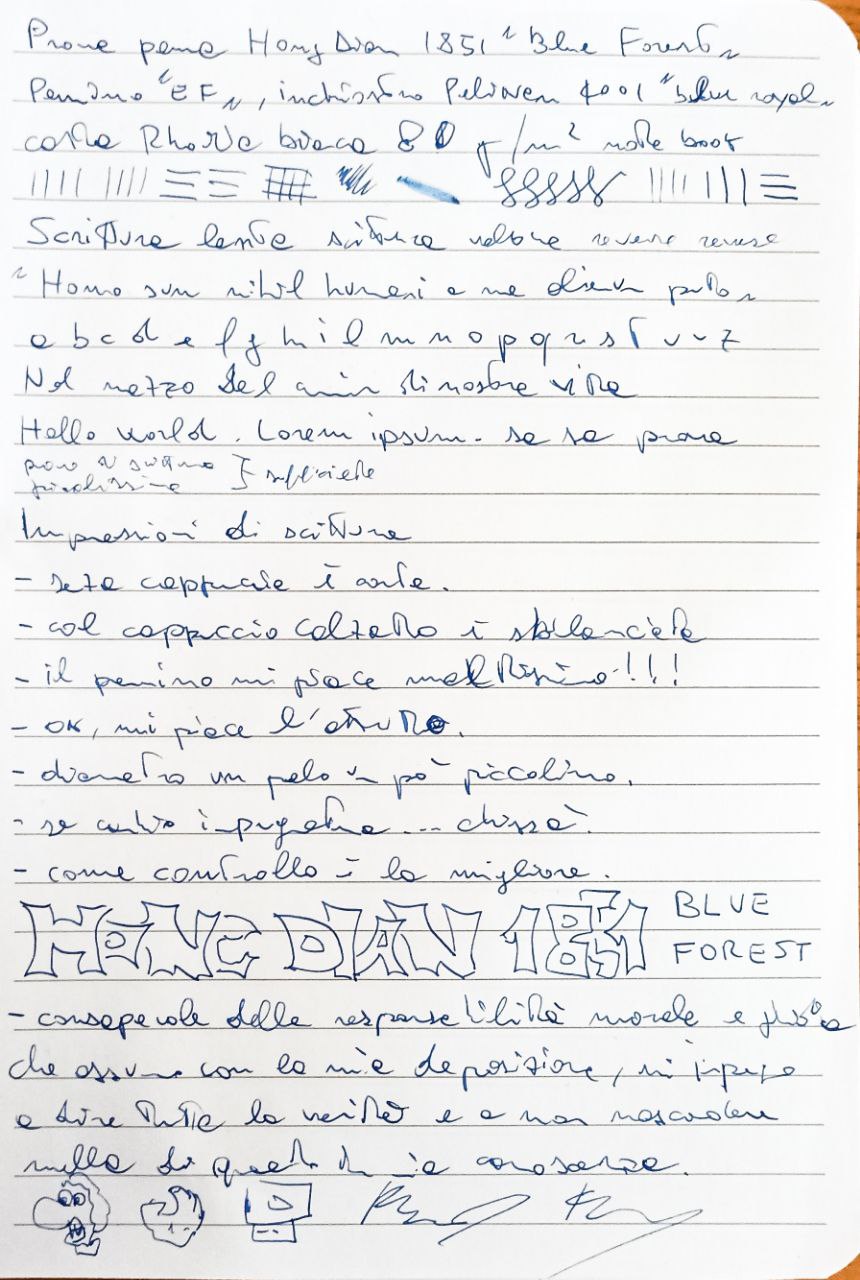 Prova penna HongDian 1851 "Blue Forest"
Pennino "EF", inchiostro Pelikan 4001 "blue royal"
carta Rhodia bianca 80 g/m² note book
Scrittura lenta scrittura veloce reverse reverse
"Homo sum nihil humani a me alienum puto"
a b c d e f g h i l m n o p q r s t u v z
Nel mezzo del camin di nostra vita
Hello world. Lorem ipsum. sa sa prova
piccolissima } sufficiente
Impressioni di scrittura
- senza cappuccio è corta.
- col cappuccio calzato è sbilanciata
- il pennino mi piace moltissimo!!!
- OK, mi piace l'astuccio.
- diametro un pelo un pò piccolino.
- se cambio impugnatura... chissà.
- come controllo è la migliore.
HONG DIAN 1851 BLUE
FOREST
- consapevole della responsabilità morale e giuridica
che assumo con la mia deposizione, mi impegno
a dire tutta la verità e a non nascondere
nulla di quanto di mia conoscenza.